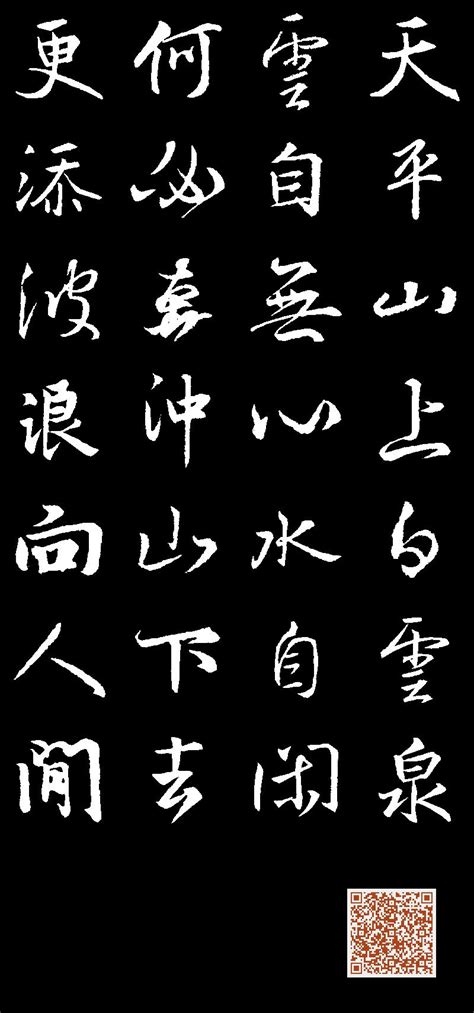 天平山上白雲泉
雲自無心水自閑
何必奔沖山下去
更添波浪向人間